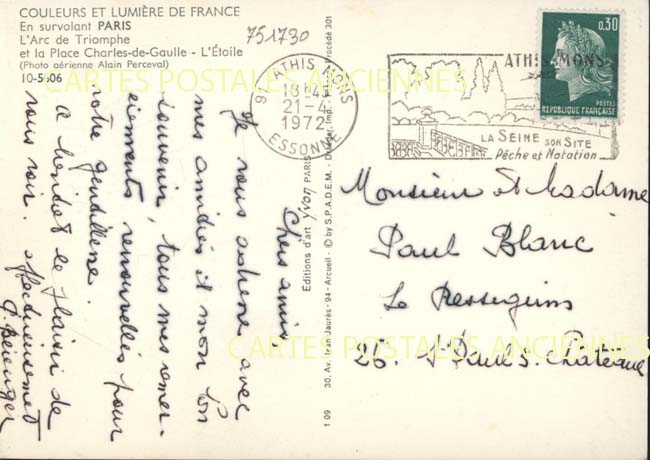 COULEURS ET LUMIÈRE DE FRANCE
En survolant PARIS
L'Arc de Triomphe
et la Place Charles-de-Gaulle - L'Étoile
(Photo aérienne Alain Perceval)
10-5606
751730
ATHIS MONS
18H45
21-4
1972
ESSONNE
ATHIS-MONS
LA SEINE SON SITE
Pêche et Natation
0,30
POSTES
REPUBLIQUE FRANÇAISE
Chers amis
Je vous adresse avec
mes amitiés et mon bon
souvenir, tous mes remer-
ciements renouvelés pour
votre gentillesse.
à bientôt le plaisir de
vous voir. affectueusement
Editions d'art yvon PARIS
30, Av. Jean Jaurès - 94 - Arcueil - © by S.P.A.D.E.M. - Imp. Procédé 301
1 09
Monsieur et Madame
Paul Blanc
26. St Paul 3 Châteaux
CARTES POSTALES ANCIENNES
CARTES POSTALES ANCIENNES